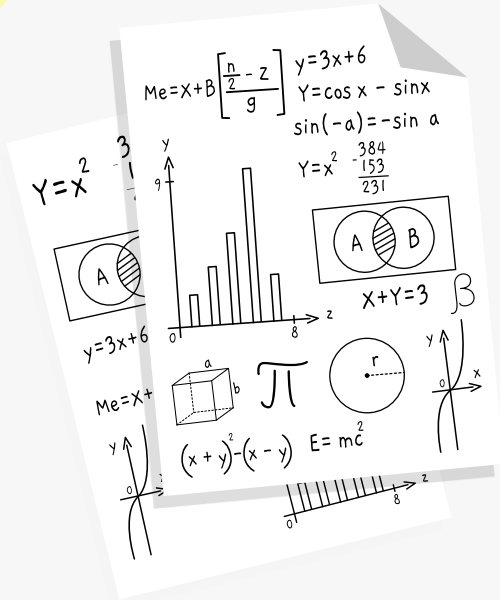 Me=X+B[n/2 - z / g]
y=3x+6
Y=cos x - sinx
sin(-a)=-sin a
Y=x²
-384
153
231
y
9
0
8
z
A B
X+Y=3 β
a
b
π
r
y
x
0
(x + y)²-(x - y)
E= mc²
Y=x²
3
A
y=3x+6
Me=X+
y
0
0
8
z